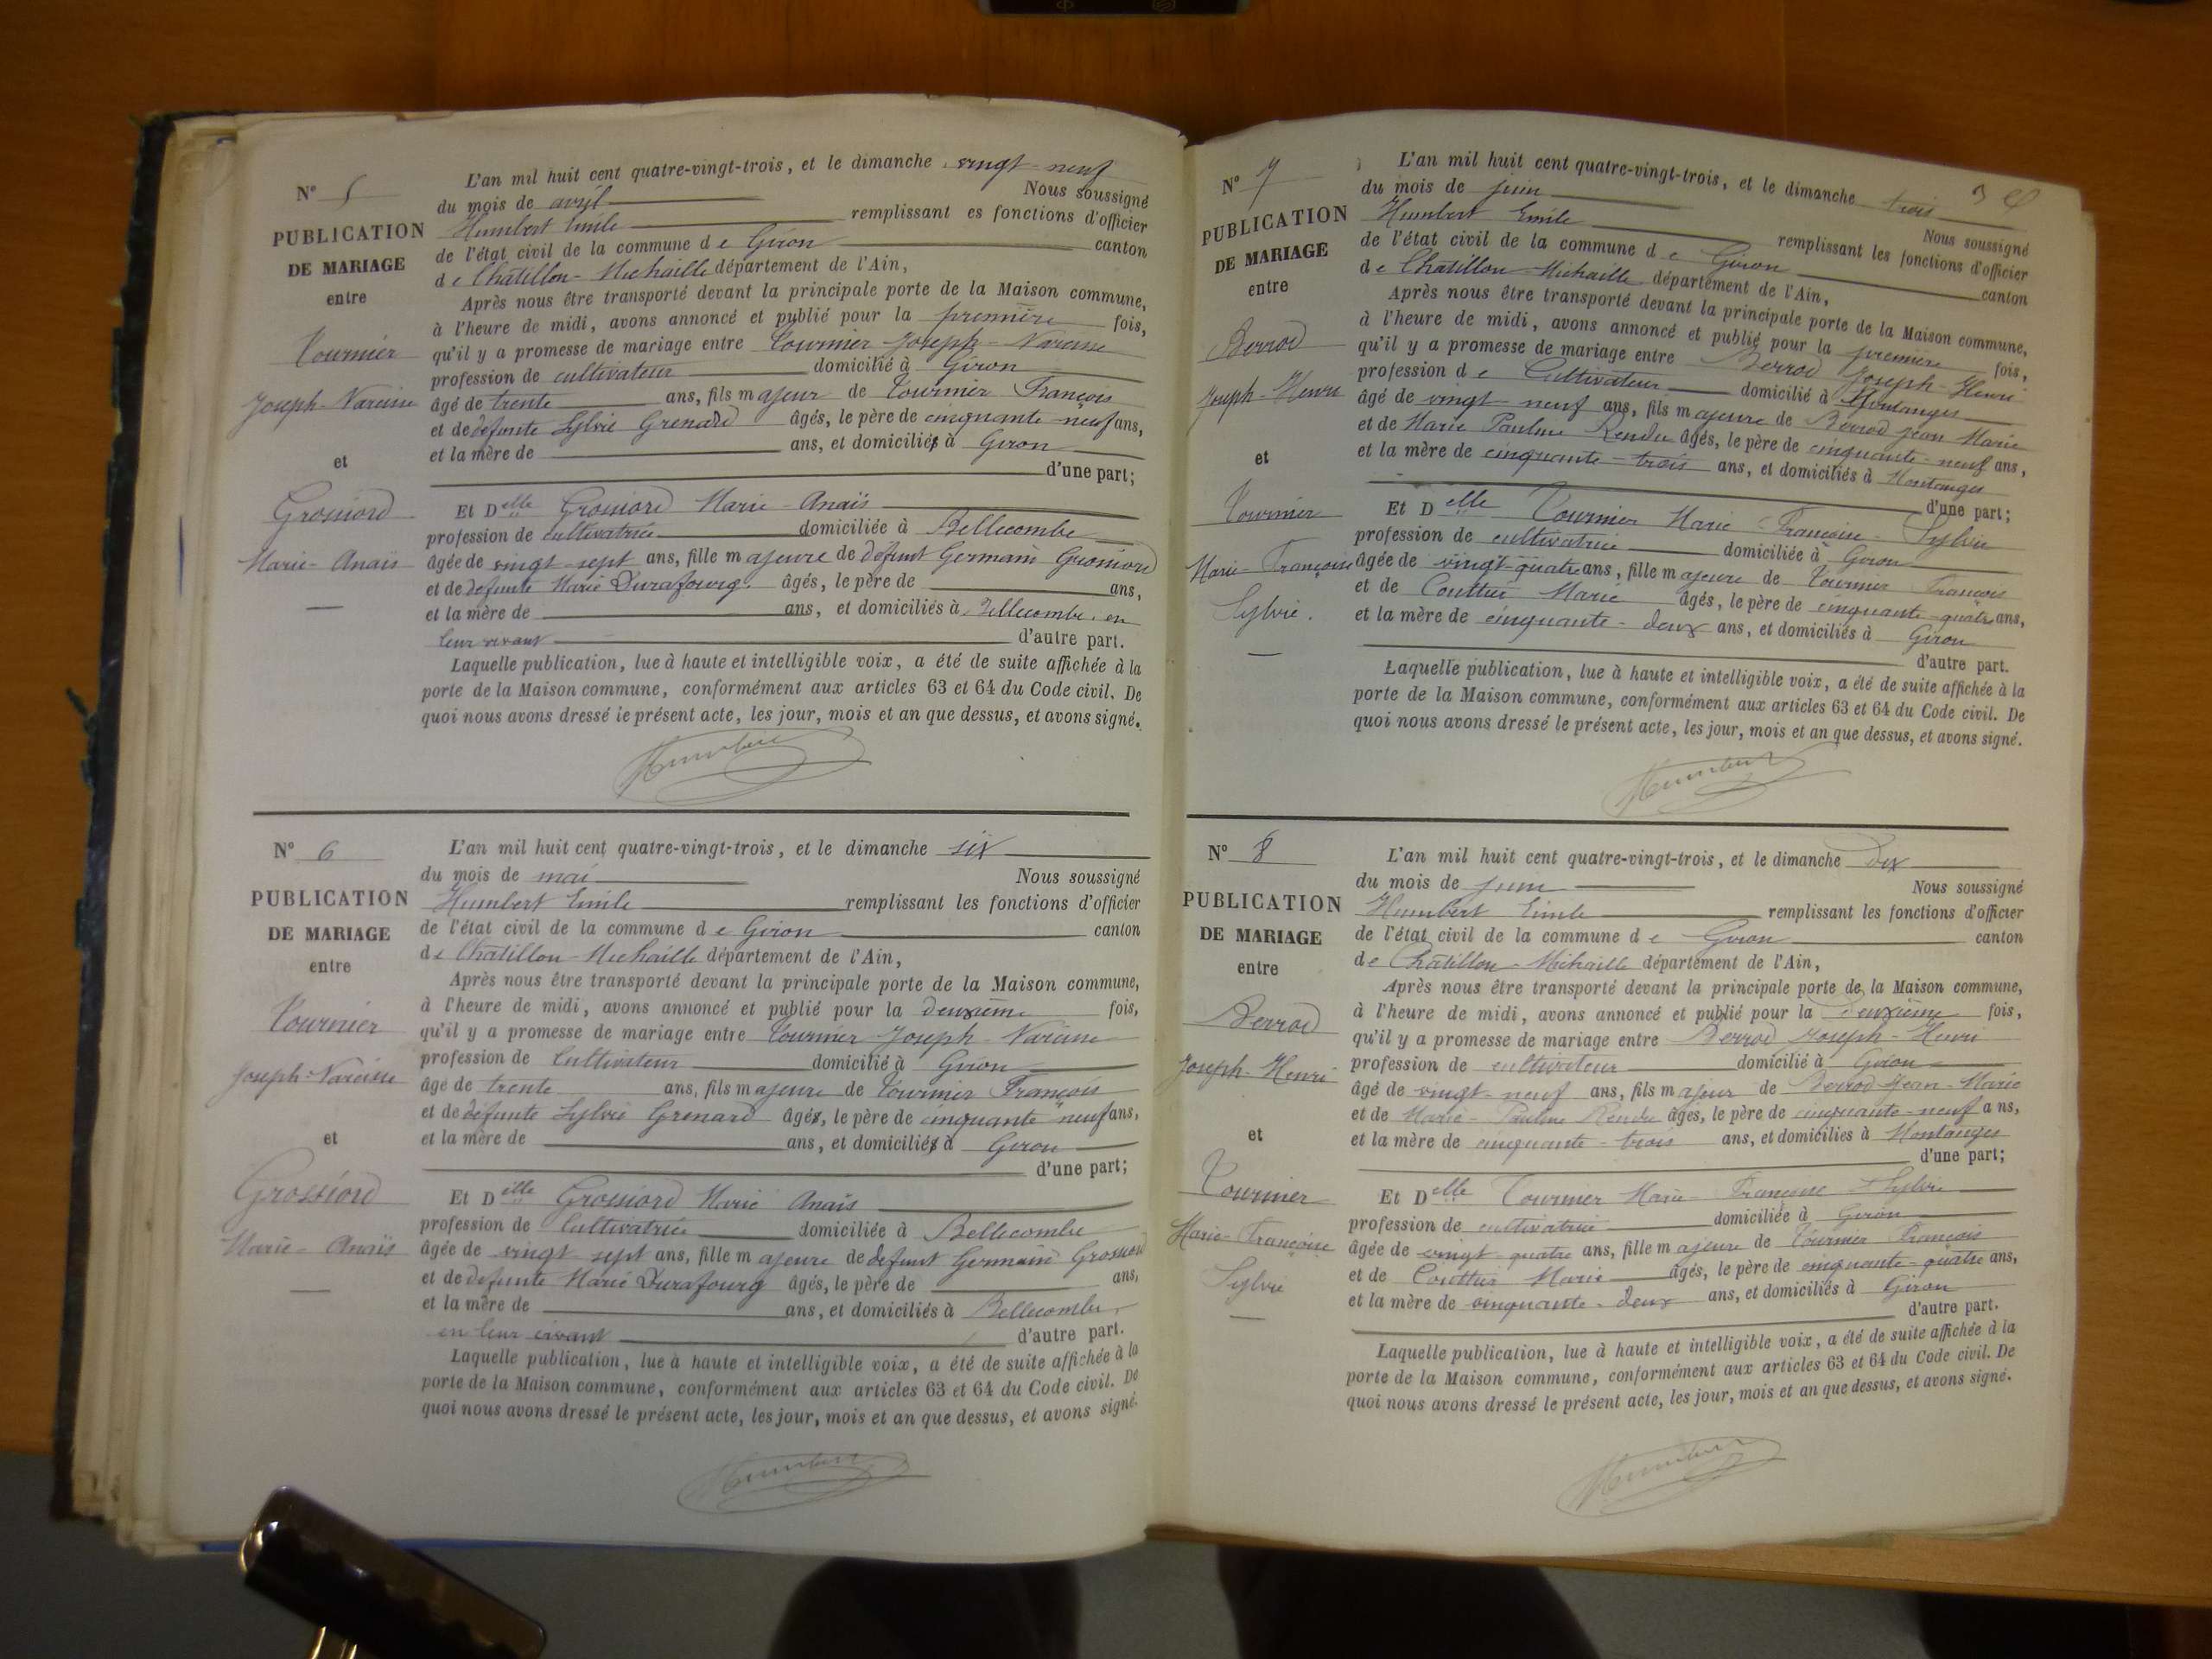 N° 5
PUBLICATION
DE MARIAGE
entre
Tournier
Joseph-Narcisse
et
Grossiord
Marie-Anaïs
L'an mil huit cent quatre-vingt-trois, et le dimanche vingt-neuf
du mois de avril Nous soussigné
Humbert Emile remplissant es fonctions d'officier
de l'état civil de la commune d e Giron canton
d e Châtillon-Michaille département de l'Ain,
Après nous être transporté devant la principale porte de la Maison commune,
à l'heure de midi, avons annoncé et publié pour la première fois,
qu'il y a promesse de mariage entre Tournier Joseph-Narcisse
profession de cultivateur domicilié à Giron
âgé de trente ans, fils m ajeur de Tournier François
et de défunte Sylvie Grenard âgés, le père de cinquante-neuf ans,
et la mère de ans, et domiciliés à Giron
d'une part;
Et D elle Grossiord Marie-Anaïs
profession de cultivatrice domiciliée à Bellecombe
âgée de vingt-sept ans, fille m ajeure de défunt Germain Grossiord
et de défunte Marie Durafourg âgés, le père de ans,
et la mère de ans, et domiciliés à Bellecombe, en
leur vivant d'autre part.
Laquelle publication, lue à haute et intelligible voix, a été de suite affichée à la
porte de la Maison commune, conformément aux articles 63 et 64 du Code civil. De
quoi nous avons dressé le présent acte, les jour, mois et an que dessus, et avons signé.
Humbert
N° 6
PUBLICATION
DE MARIAGE
entre
Tournier
Joseph-Narcisse
et
Grossiord
Marie-Anaïs
L'an mil huit cent quatre-vingt-trois, et le dimanche six
du mois de mai Nous soussigné
Humbert Emile remplissant les fonctions d'officier
de l'état civil de la commune d e Giron canton
d e Châtillon-Michaille département de l'Ain,
Après nous être transporté devant la principale porte de la Maison commune,
à l'heure de midi, avons annoncé et publié pour la deuxième fois,
qu'il y a promesse de mariage entre Tournier Joseph-Narcisse
profession de Cultivateur domicilié à Giron
âgé de trente ans, fils m ajeure de Tournier François
et de défunte Sylvie Grenard âgés, le père de cinquante neuf ans,
et la mère de ans, et domiciliés à Giron
d'une part;
Et D elle Grossiord Marie Anaïs
profession de Cultivatrice domiciliée à Bellecombe
âgée de vingt-sept ans, fille m ajeure de défunt Germain Grossiord
et de défunte Marie Durafourg âgés, le père de ans,
et la mère de ans, et domiciliés à Bellecombe,
en leur vivant d'autre part.
Laquelle publication, lue à haute et intelligible voix, a été de suite affichée à la
porte de la Maison commune, conformément aux articles 63 et 64 du Code civil. De
quoi nous avons dressé le présent acte, les jour, mois et an que dessus, et avons signé.
Humbert
N° 7
PUBLICATION
DE MARIAGE
entre
Berrod
Joseph-Henri
et
Tournier
Marie-Françoise
Sylvie.
3
L'an mil huit cent quatre-vingt-trois, et le dimanche trois
du mois de juin Nous soussigné
Humbert Emile remplissant les fonctions d'officier
de l'état civil de la commune d e Giron canton
d e Châtillon-Michaille département de l'Ain,
Après nous être transporté devant la principale porte de la Maison commune,
à l'heure de midi, avons annoncé et publié pour la première fois,
qu'il y a promesse de mariage entre Berrod Joseph-Henri
profession d e Cultivateur domicilié à Montanges
âgé de vingt-neuf ans, fils m ajeure de Berrod Jean Marie
et de Marie Pauline Rendu âgés, le père de cinquante-neuf ans,
et la mère de cinquante-trois ans, et domiciliés à Montanges
d'une part;
Et D elle Tournier Marie-Françoise-Sylvie
profession de cultivatrice domiciliée à Giron
âgée de vingt-quatre ans, fille m ajeure de Tournier François
et de Couttier Marie âgés, le père de cinquante-quatre ans,
et la mère de cinquante-deux ans, et domiciliés à Giron
d'autre part.
Laquelle publication, lue à haute et intelligible voix, a été de suite affichée à la
porte de la Maison commune, conformément aux articles 63 et 64 du Code civil. De
quoi nous avons dressé le présent acte, les jour, mois et an que dessus, et avons signé.
Humbert
N° 8
PUBLICATION
DE MARIAGE
entre
Berrod
Joseph-Henri
et
Tournier
Marie-Françoise
Sylvie
L'an mil huit cent quatre-vingt-trois, et le dimanche dix
du mois de juin Nous soussigné
Humbert Emile remplissant les fonctions d'officier
de l'état civil de la commune d e Giron canton
d e Châtillon-Michaille département de l'Ain,
Après nous être transporté devant la principale porte de la Maison commune,
à l'heure de midi, avons annoncé et publié pour la deuxième fois,
qu'il y a promesse de mariage entre Berrod Joseph-Henri
profession de cultivateur domicilié à Giron
âgé de vingt-neuf ans, fils m ajeur de Berrod Jean-Marie
et de Marie-Pauline Rendu âgés, le père de cinquante-neuf ans,
et la mère de cinquante-trois ans, et domiciliés à Montanges
d'une part;
Et D elle Tournier Marie-Françoise-Sylvie
profession de cultivatrice domiciliée à Giron
âgée de vingt-quatre ans, fille m ajeure de Tournier François
et de Couttier Marie âgés, le père de cinquante-quatre ans,
et la mère de cinquante-deux ans, et domiciliés à Giron
d'autre part.
Laquelle publication, lue à haute et intelligible voix, a été de suite affichée à la
porte de la Maison commune, conformément aux articles 63 et 64 du Code civil. De
quoi nous avons dressé le présent acte, les jour, mois et an que dessus, et avons signé.
Humbert